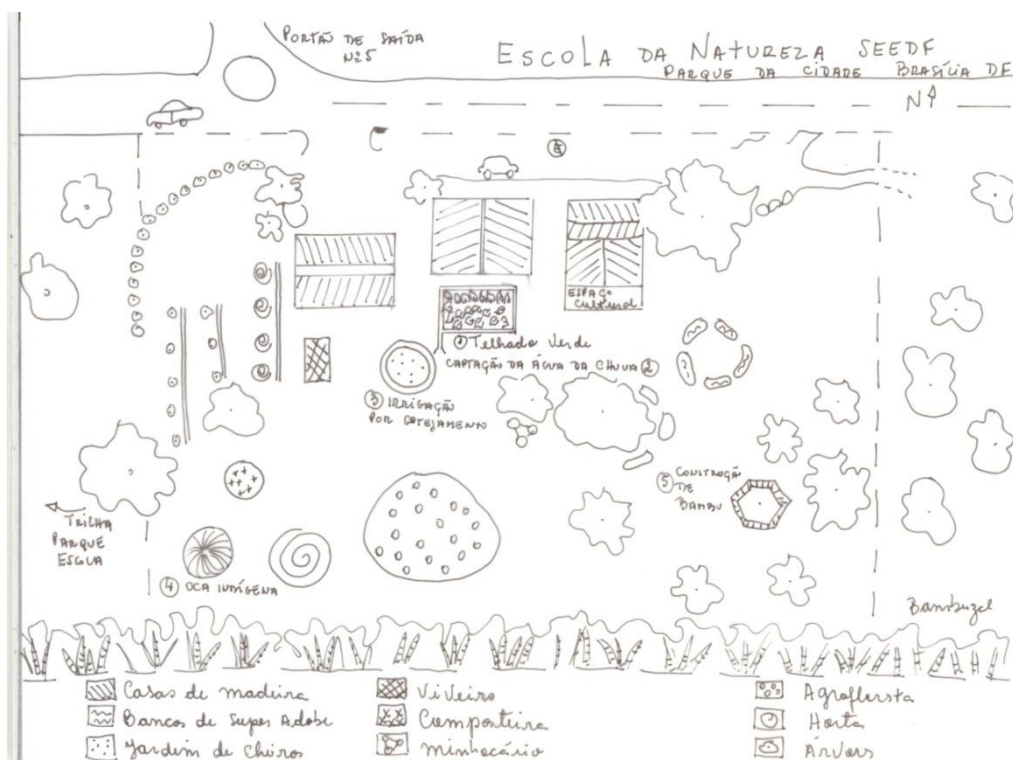 PORTÃO DE SAÍDA
Nº5
ESCOLA DA NATUREZA SEEDF
PARQUE DA CIDADE BRASÍLIA DF
N
ESPAÇO
Cultural
① Telhado Verde
CAPTAÇÃO DA ÁGUA DA CHUVA ②
③ IRRIGAÇÃO
POR GOTEJAMENTO
⑤ CONSTRUÇÃO
DE
BAMBU
TRILHA
PARQUE
ESCOLA
④ OCA INDÍGENA
Bambuzal
Casas de madeira
Bancos de Super Adobe
Jardim de Cheiros
Viveiro
Composteira
Minhocário
Agrofloresta
Horta
Árvores